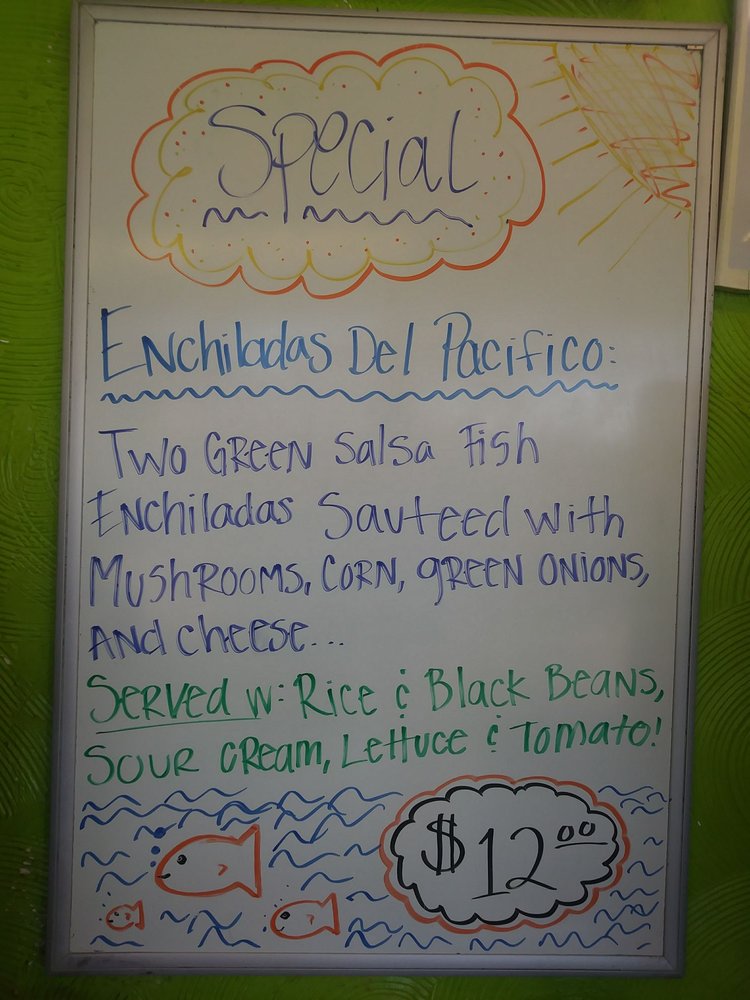 Special
Enchiladas Del Pacifico:
Two Green Salsa Fish
Enchiladas Sauteed with
Mushrooms, Corn, green onions,
and cheese...
Served w: Rice & Black Beans,
Sour cream, Lettuce & Tomato!
$12.00